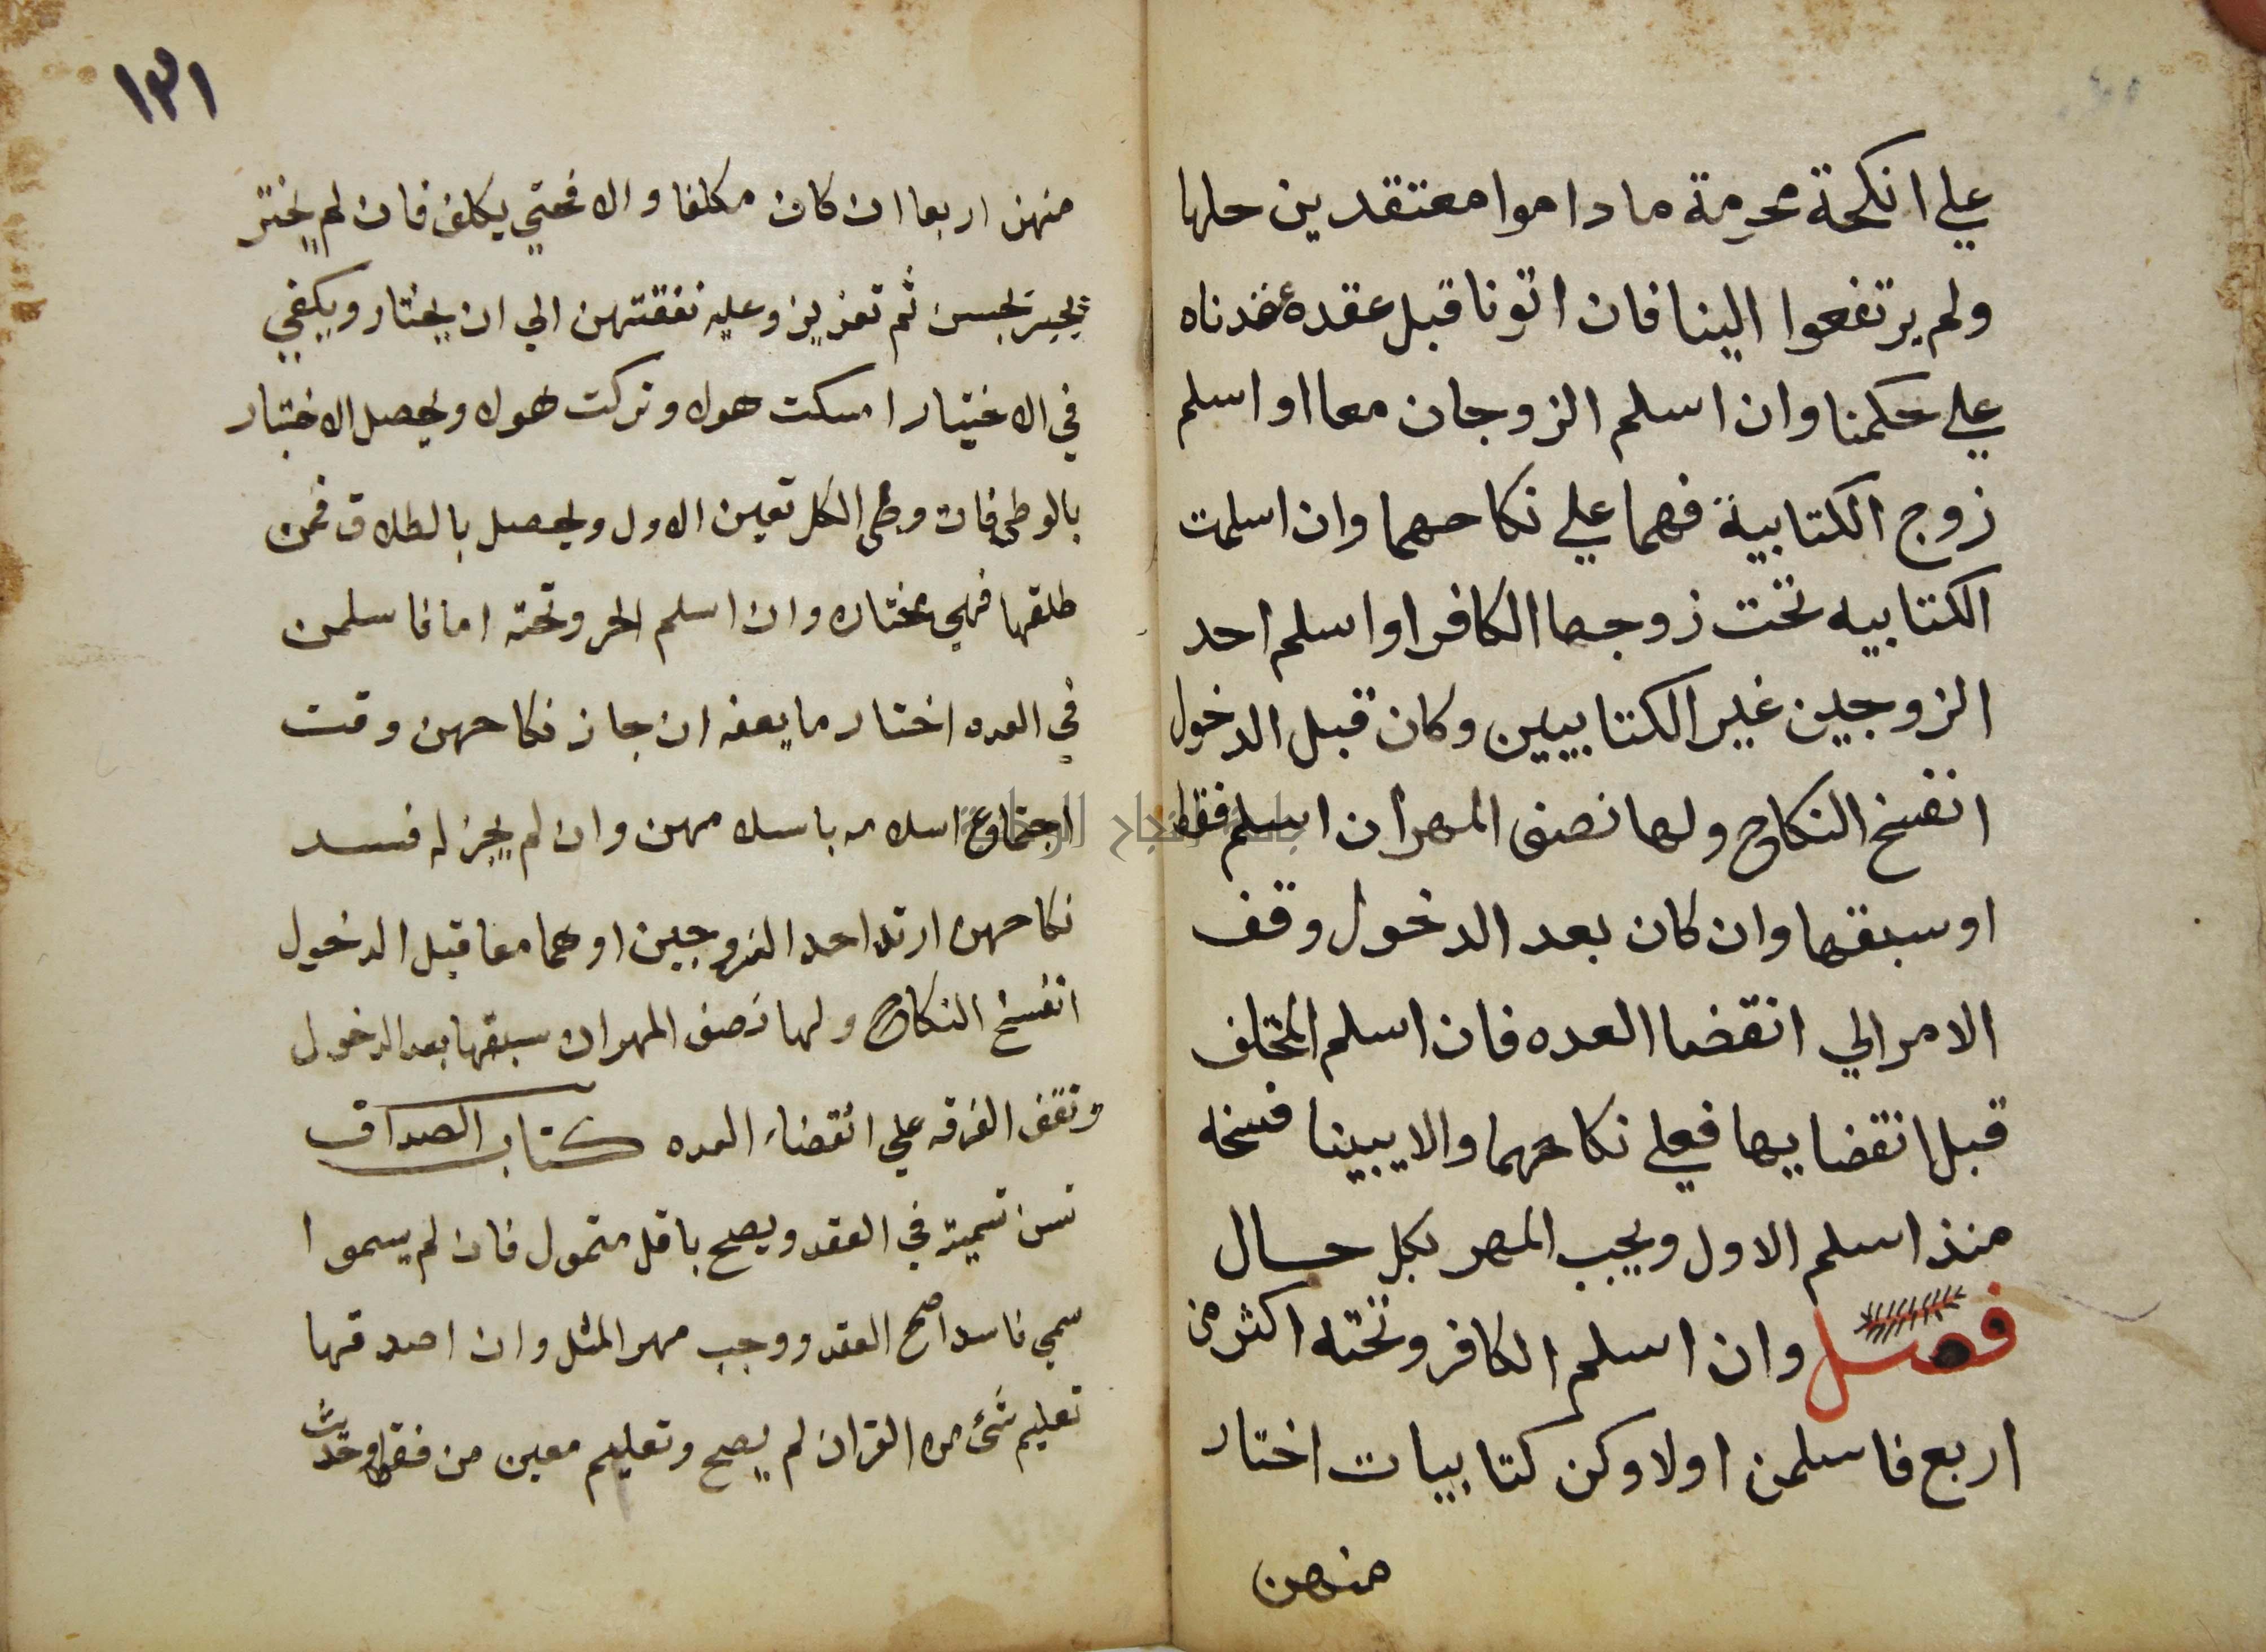 علي انكحة محرمة ما داموا معتقدين حلها
ولم يرتفعوا الينا فان اتونا قبل عقده عقدناه
علي حكمنا وان اسلم الزوجان معا او اسلم
زوج الكتابية فهما علي نكاحهما وان اسلمت
الكتابيه تحت زوجها الكافر او اسلم احد
الزوجين غير الكتابيين وكان قبل الدخول
انفسخ النكاح ولها نصف المهر ان اسلم فقط
او سبقها وان كان بعد الدخول وقف
الامر الي انقضا العده فان اسلم المتخلف
قبل انقضايها فعلي نكاحهما والا يبينا فسخه
منذ اسلم الاول ويجب المهر بكل حال
فصل وان اسلم الكافر وتحته اكثر من
اربع فاسلمن اولا وكن كتابيات اختار
منهن
١٣١
منهن اربعا ان كان مكلفا والا فحتي يكلف فان لم يختر
يجبر بحبس ثم تعزير وعليه نفقتهن الي ان يختار ويكفي
في الاختيار امسكت هولا وتركت هولا ويحصل الاختيار
بالوطئ فان وطئ الكل تعين الاول ويحصل بالطلاق فمن
طلقها فهي مختاره وان اسلم الحر وتحته اما فاسلمن
في العده اختار ما يعفه ان جاز نكاحهن وقت
اجتماع اسلامه باسلامهن وان لم يجز له فسد
نكاحهن ارتد احد الزوجين او هما معا قبل الدخول
انفسخ النكاح ولها نصف المهر ان سبقها بعد الدخول
وتقف الفرقه علي انقضاء العده كتاب الصداق
تسن تسميته في العقد ويصح باقل متمول فان لم يسموا
سمي فاسدا صح العقد ووجب مهر المثل وان اصدقها
تعليم شئ من القران لم يصح وتعليم معين من فقه او حديث